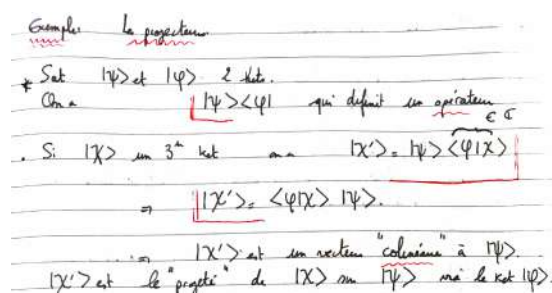 Exemple: Le projecteur.
* Soit |ψ> et |φ> 2 kets.
On a |ψ><φ| qui définit un opérateur
∈ ℂ
. Si |χ> un 3ème ket on a |χ'> = |ψ> <φ|χ>
⇒ |χ'> = <φ|χ> |ψ>.
⇒ |χ'> est un vecteur "colinéaire" à |ψ>.
|χ'> est le "projeté" de |χ> sur |ψ> via le ket |φ>.